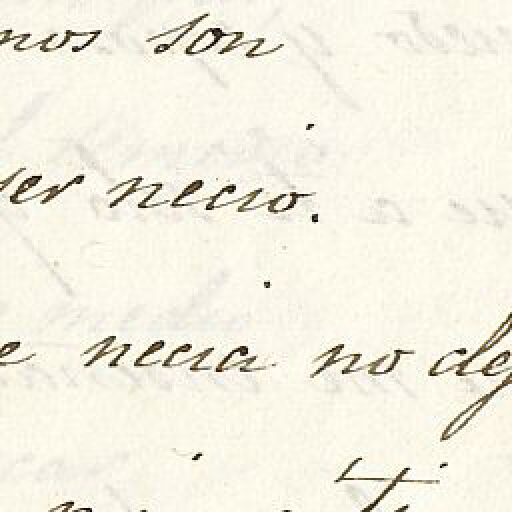 mos son
ser necio.
e necia no dej